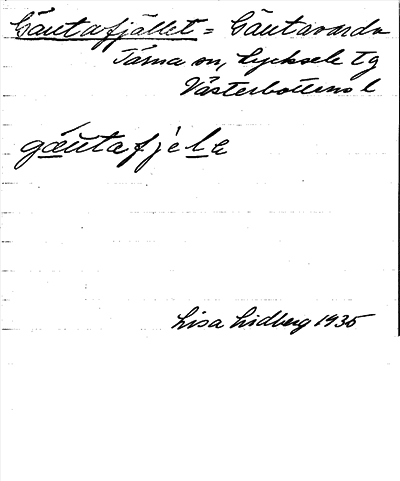 Gäutafjället = Gäutavardo
Tärna sn, Lycksele tg
Västerbottens l
gäutafjelɐ
Lisa Lidberg 1935